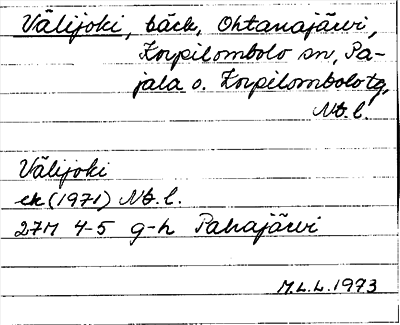 Välijoki, bäck, Ohtanajärvi,
Korpilombolo sn, Pa-
jala o. Korpilombolo tg,
Nb. l.
Välijoki
ek (1971) Nb. l.
27M 4-5 g-h Pahajärvi
M.L.L. 1973